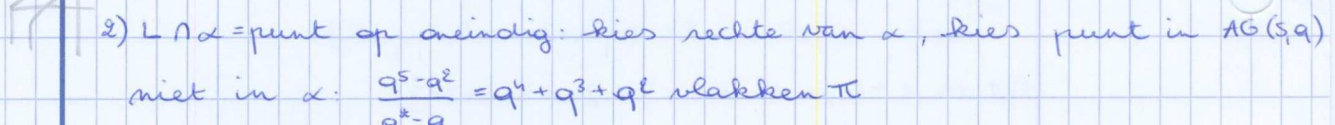 2) L ∩ α = punt op oneindig: kies rechte van α, kies punt in AG(5,q)
niet in α: (q⁵-q²)/(q²-q) = q⁴+q³+q² vlakken π